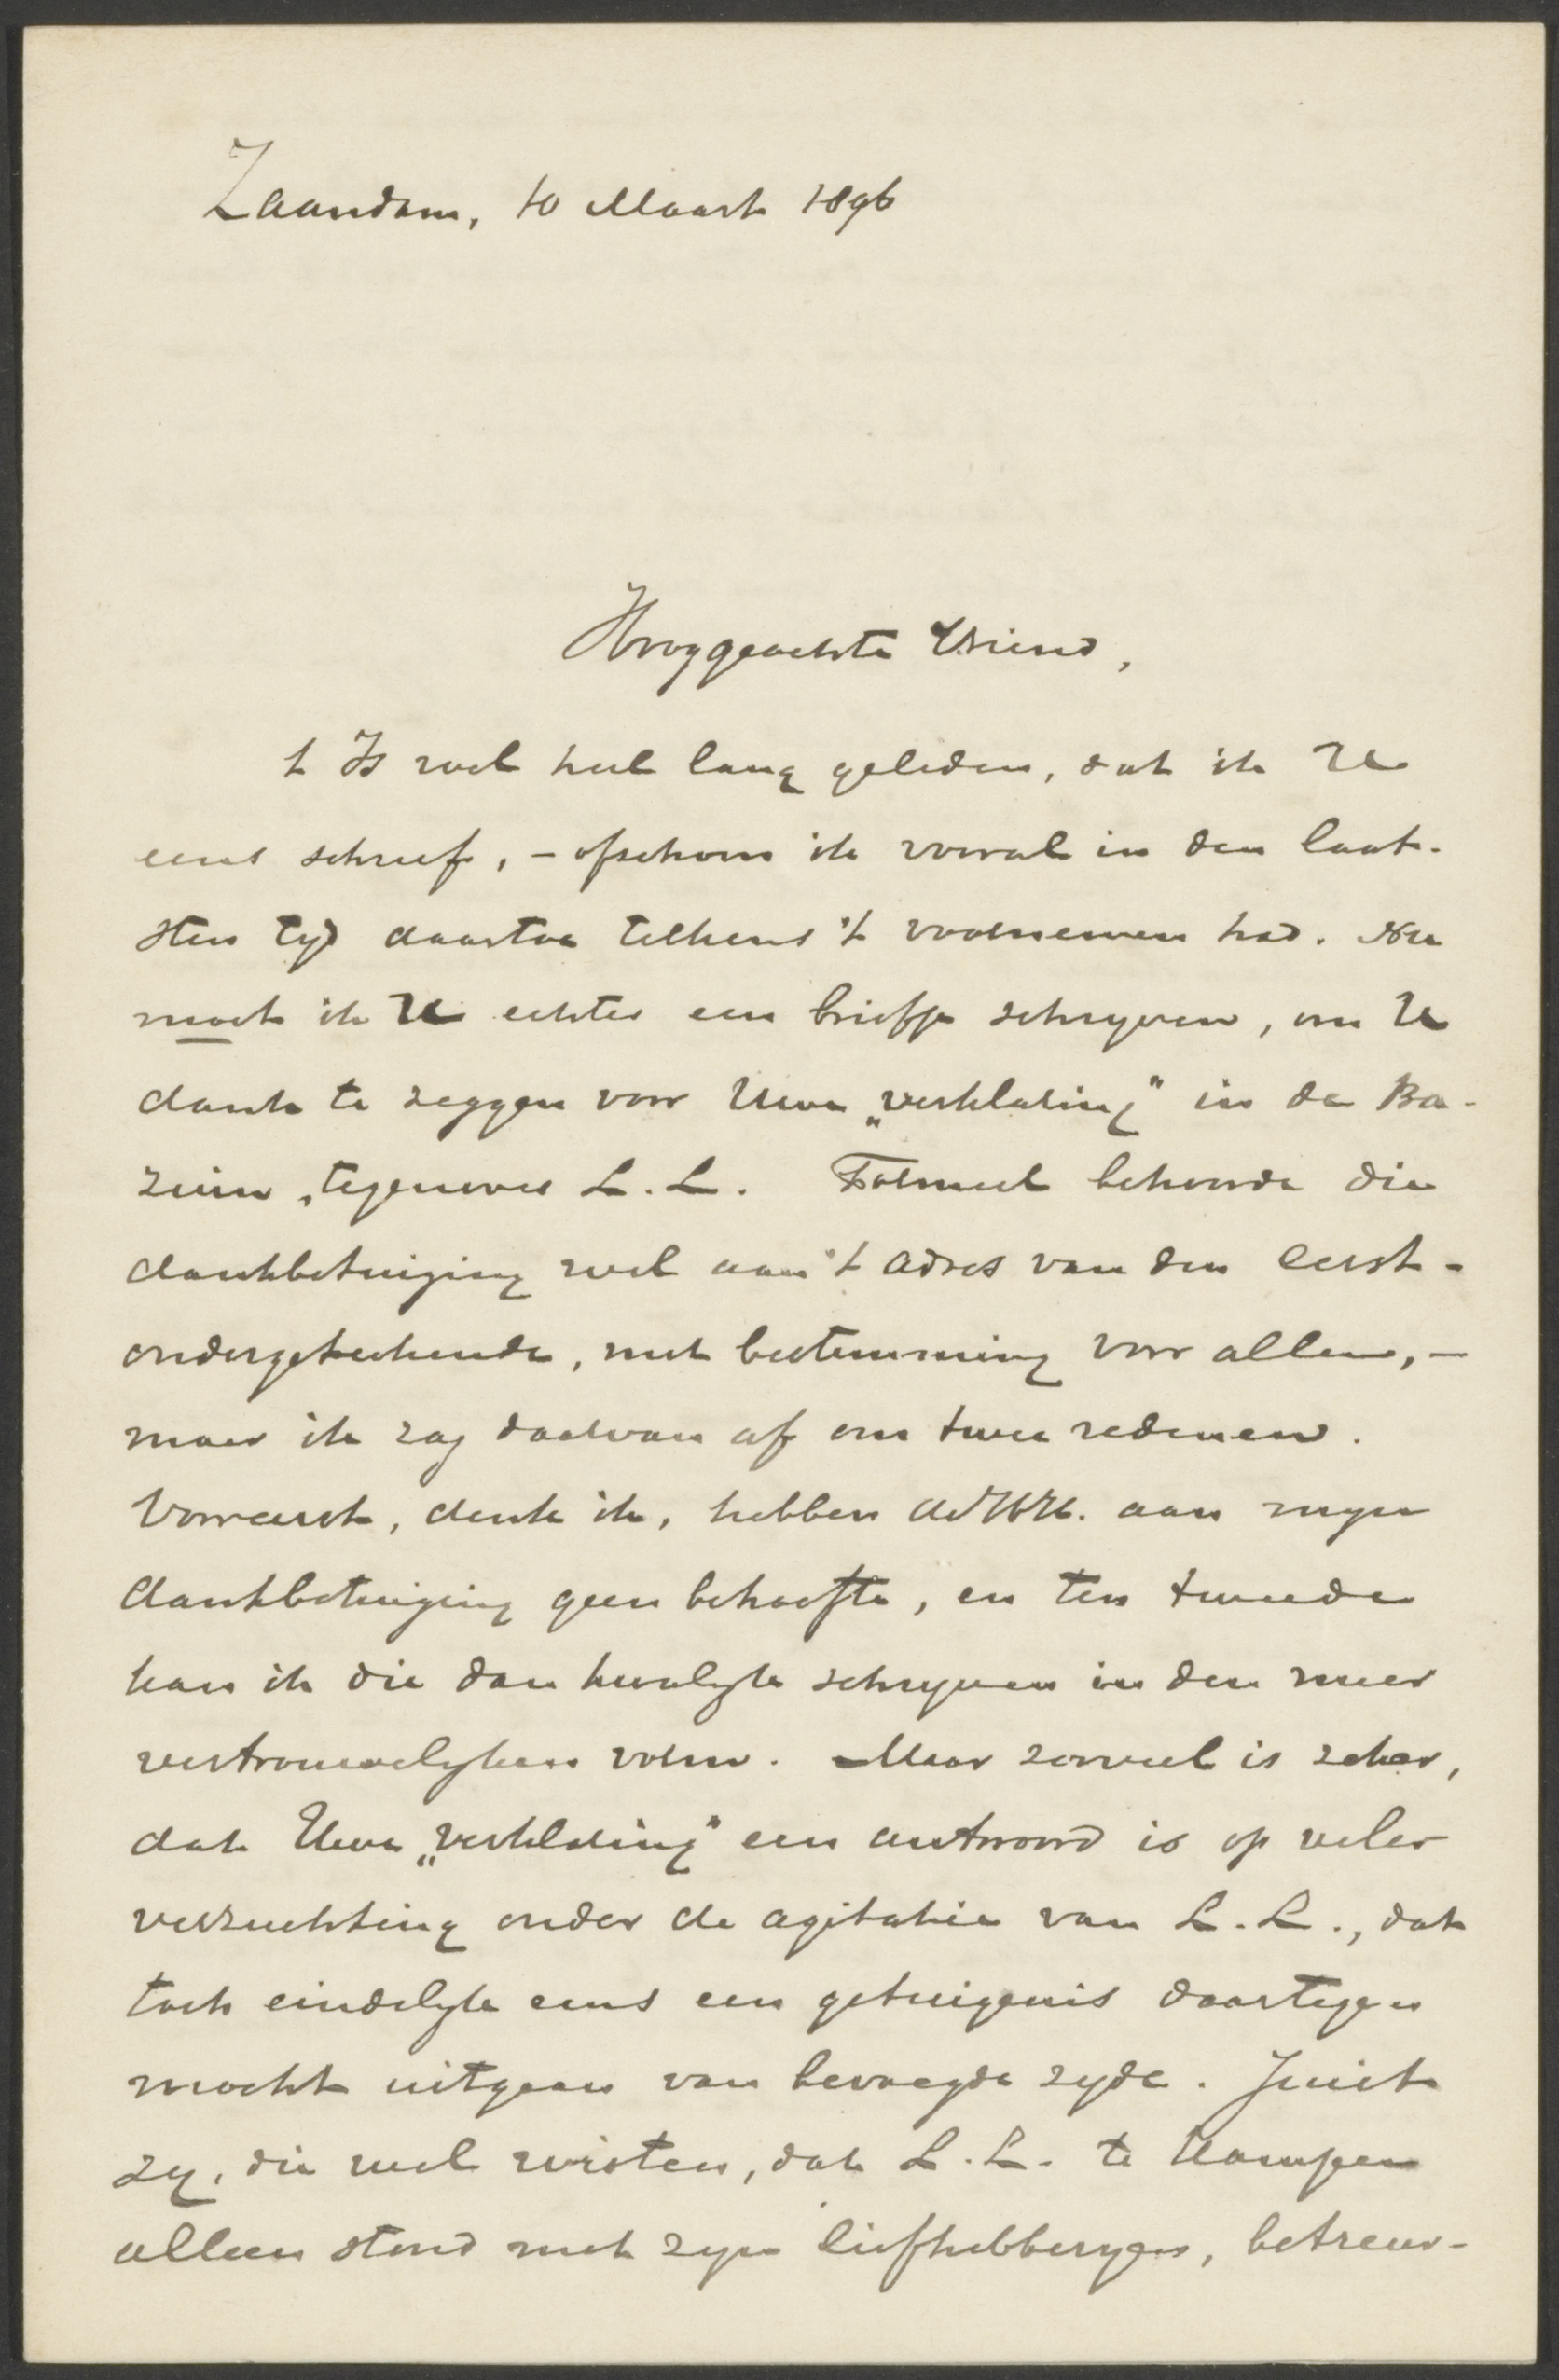 Zaandam, 10 Maart 1896
Hooggeachte Vriend,
't Is wel heel lang geleden, dat ik U
eens schreef, – ofschoon ik vooral in den laat-
sten tyd daartoe telkens 't voornemen had. Nu
moet ik U echter een briefje schryven, om U
dank te zeggen voor Uwe „verklaring" in de Ba-
zuin, tegenover L. L. Formeel behoorde die
dankbetuiging wel aan 't adres van den eerst-
ondergeteekende, met bestemming voor allen, –
maar ik zag daarvan af om twee redenen.
Vooreerst, denk ik, hebben de HH. aan myn
dankbetuiging geen behoefte, en ten tweede
kan ik die dan kwalyk schryven in den meer
vertrouwelyken vorm. Maar zooveel is zeker,
dat Uwe „verklaring" een antwoord is op veler
verzuchting onder de agitatie van L. L., dat
toch eindelyk eens een getuigenis daartegen
mocht uitgaan van bevoegde zyde. Juist
zy, die wel wisten, dat L. L. te Kampen
alleen stond met zyn liefhebberyen, betreur-